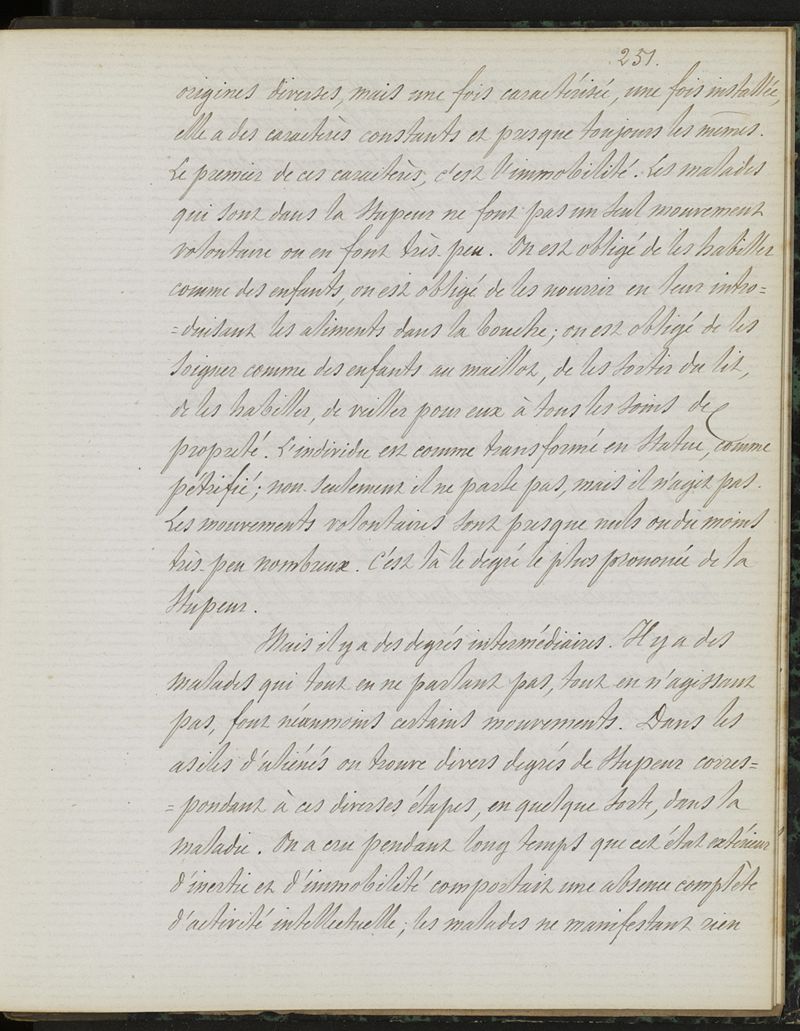 251.
origines diverses, mais une fois caractérisée, une fois installée,
elle a des caractères constants et presque toujours les mêmes.
Le premier de ces caractères, c'est l'immobilité. Les malades
qui sont dans la stupeur ne font pas un seul mouvement
volontaire ou en font très peu. On est obligé de les habiller
comme des enfants, on est obligé de les nourrir en leur intro=
=duisant les aliments dans la bouche; on est obligé de les
soigner comme des enfants au maillot, de les sortir du lit,
de les habiller, de veiller pour eux à tous les soins de
propreté. L'individu est comme transformé en statue, comme
pétrifié; non seulement il ne parle pas, mais il n'agit pas.
Les mouvements volontaires sont presque nuls ou du moins
très peu nombreux. C'est là le degré le plus prononcé de la
stupeur.
Mais il y a des degrés intermédiaires. Il y a des
malades qui tout en ne parlant pas, tout en n'agissant
pas, font néanmoins certains mouvements. Dans les
asiles d'aliénés on trouve divers degrés de stupeur corres=
=pondant à ces diverses étapes, en quelque sorte, dans la
maladie. On a cru pendant long temps que cet état extérieur
d'inertie et d'immobilité comportait une absence complète
d'activité intellectuelle; les malades ne manifestant rien